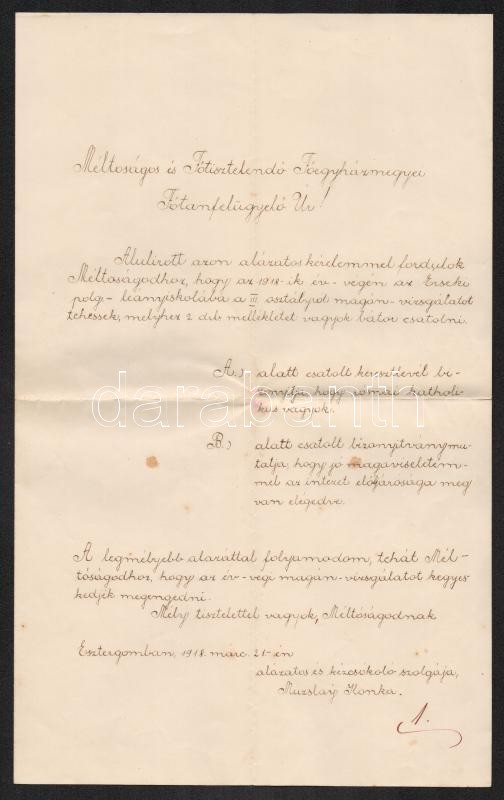 Méltóságos és Főtisztelendő Főegyházmegyei
Főtanfelügyelő Úr!
Alulírott azon alázatos kérelemmel fordulok
Méltóságodhoz, hogy az 1918-ik év-végén az Érseki
polg-leányiskolába a III osztályról magán-vizsgálatot
tehessek, melyhez 2 drb mellékletet vagyok bátor csatolni.
A.) alatt csatolt keresztlevél bi-
zonyítja, hogy római katholi-
kus vagyok.
B.) alatt csatolt bizonyítványmu-
tatja, hogy jó magaviseletem-
mel az intézet elöljárósága meg
van elégedve.
A legmélyebb alázattal folyamodom, tehát Mél-
tóságodhoz, hogy az év-végi magán-vizsgálatot kegyes-
kedjék megengedni.
Mély tisztelettel vagyok, Méltóságodnak
Esztergomban, 1918. márc. 21-én
alázatos és kézcsókoló szolgája,
Muzslay Ilonka.
1.
darabanth